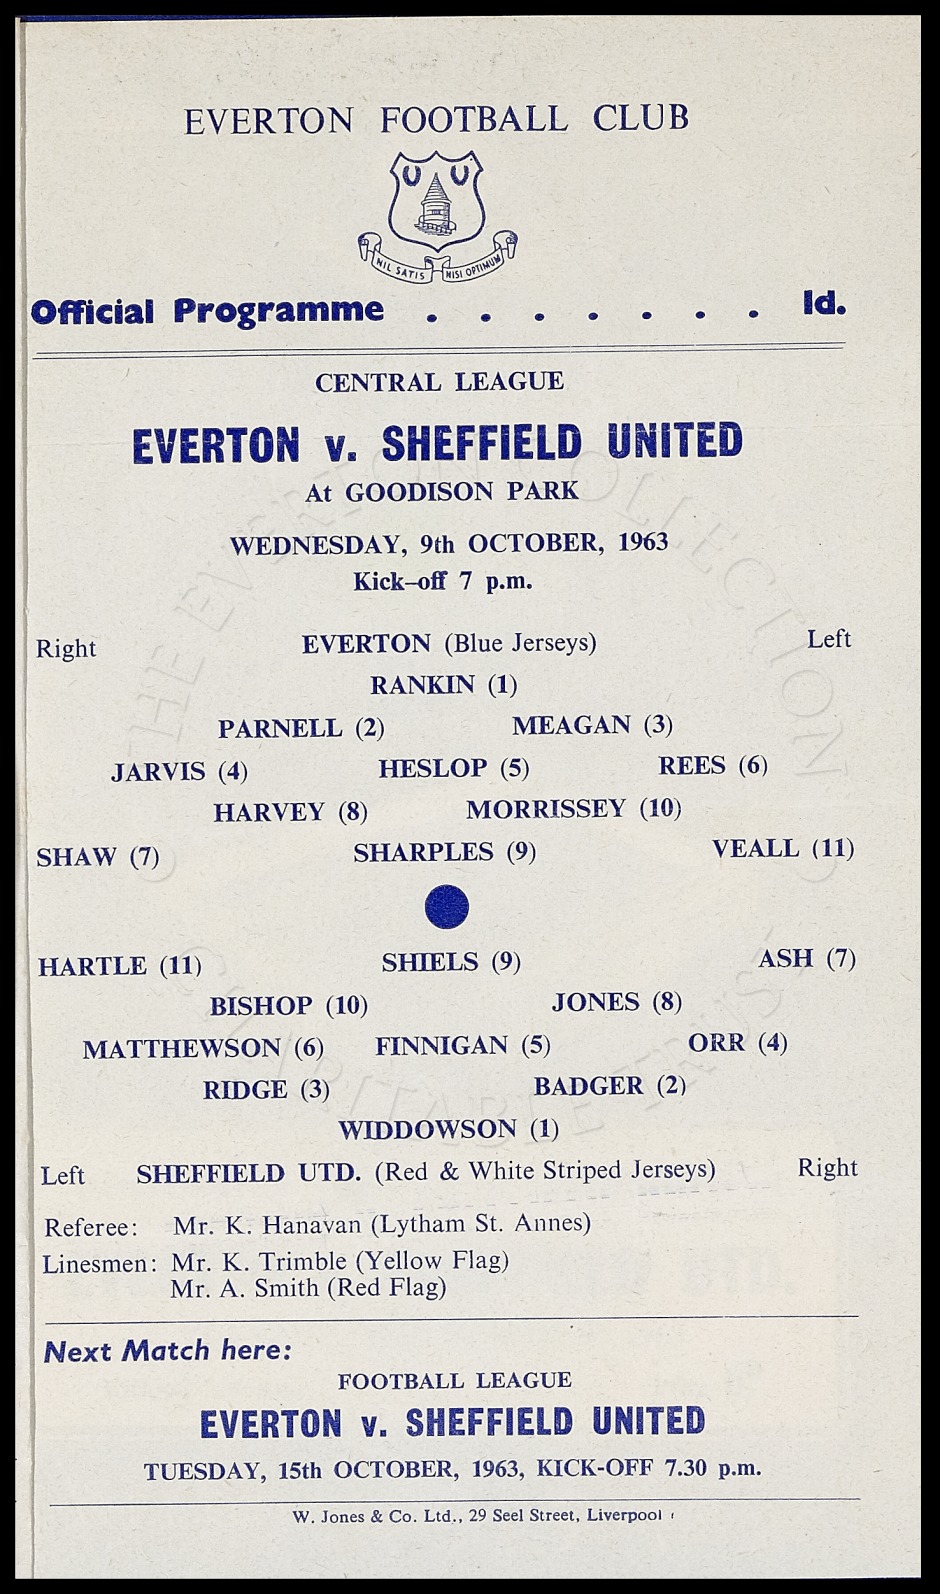 EVERTON FOOTBALL CLUB
NIL SATIS NISI OPTIMUM
Official Programme . . . . . . . 1d.
CENTRAL LEAGUE
EVERTON v. SHEFFIELD UNITED
At GOODISON PARK
WEDNESDAY, 9th OCTOBER, 1963
Kick-off 7 p.m.
Right EVERTON (Blue Jerseys) Left
RANKIN (1)
PARNELL (2) MEAGAN (3)
JARVIS (4) HESLOP (5) REES (6)
HARVEY (8) MORRISSEY (10)
SHAW (7) SHARPLES (9) VEALL (11)
HARTLE (11) SHIELS (9) ASH (7)
BISHOP (10) JONES (8)
MATTHEWSON (6) FINNIGAN (5) ORR (4)
RIDGE (3) BADGER (2)
WIDDOWSON (1)
Left SHEFFIELD UTD. (Red & White Striped Jerseys) Right
Referee: Mr. K. Hanavan (Lytham St. Annes)
Linesmen: Mr. K. Trimble (Yellow Flag)
Mr. A. Smith (Red Flag)
Next Match here:
FOOTBALL LEAGUE
EVERTON v. SHEFFIELD UNITED
TUESDAY, 15th OCTOBER, 1963, KICK-OFF 7.30 p.m.
W. Jones & Co. Ltd., 29 Seel Street, Liverpool
THE EVERTON COLLECTION
CHARITABLE TRUST